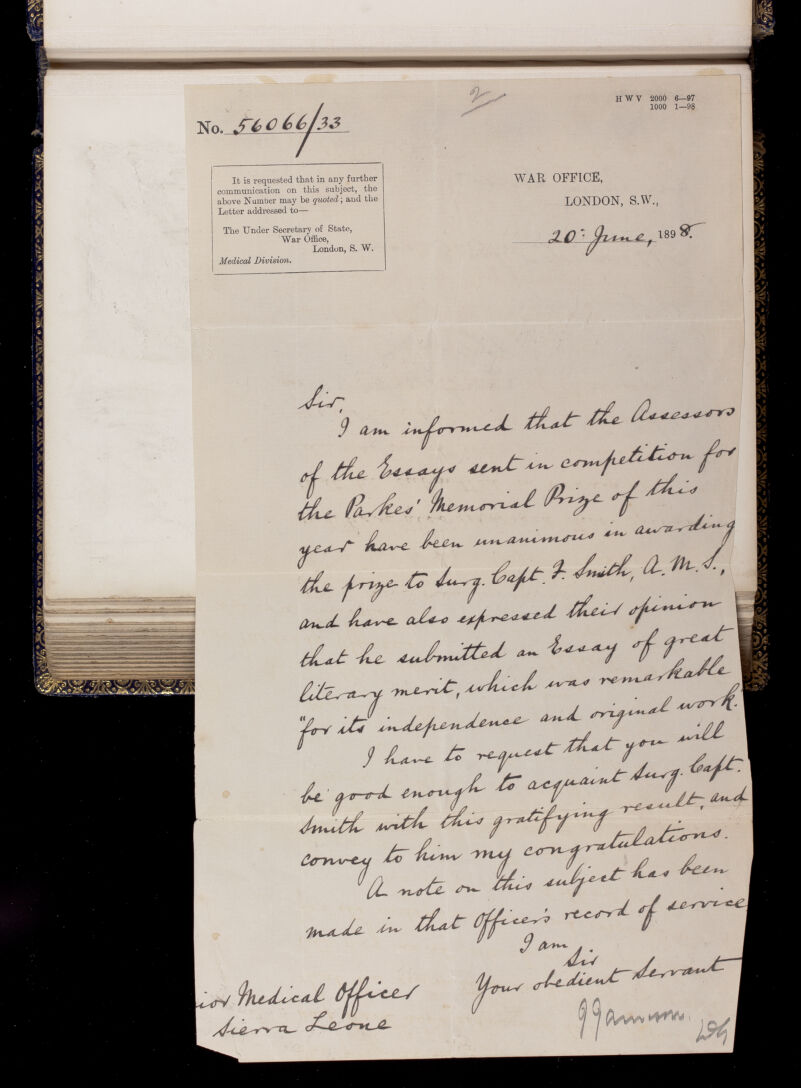 2
H W V 2000 6—97
1000 1—98
No. 56066/33
It is requested that in any further
communication on this subject, the
above Number may be quoted; and the
Letter addressed to—
The Under Secretary of State,
War Office,
London, S. W.
Medical Division.
WAR OFFICE,
LONDON, S.W.,
20: June, 1898.
Sir,
I am informed that the Assessors
of the Essays sent in competition for
the Parkes' Memorial Prize of this
year have been unanimous in awarding
the prize to Surg. Capt. F. Smith, A. M. S.,
and have also expressed their opinion
that he submitted an Essay of great
literary merit, which was remarkable
"for its independence and original work.
I have to request that you will
be good enough to acquaint Surg. Capt.
Smith with this gratifying result, and
convey to him my congratulations.
A note on this subject has been
made in that Officer's record of service
I am
Sir
Your obedient Servant
DG
ior Medical Officer
Sierra Leone